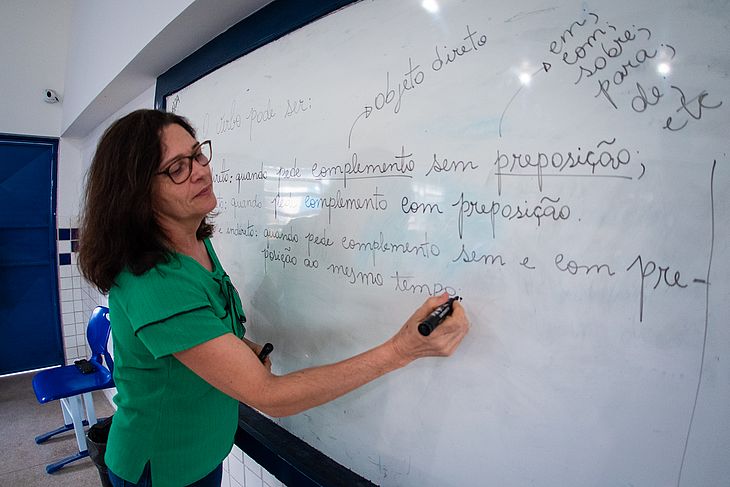 objeto direto
em;
com;
sobre;
para;
de
etc
O verbo pode ser:
quando pede complemento sem preposição;
quando pede complemento com preposição.
e indireto: quando pede complemento sem e com pre-
posição ao mesmo tempo.